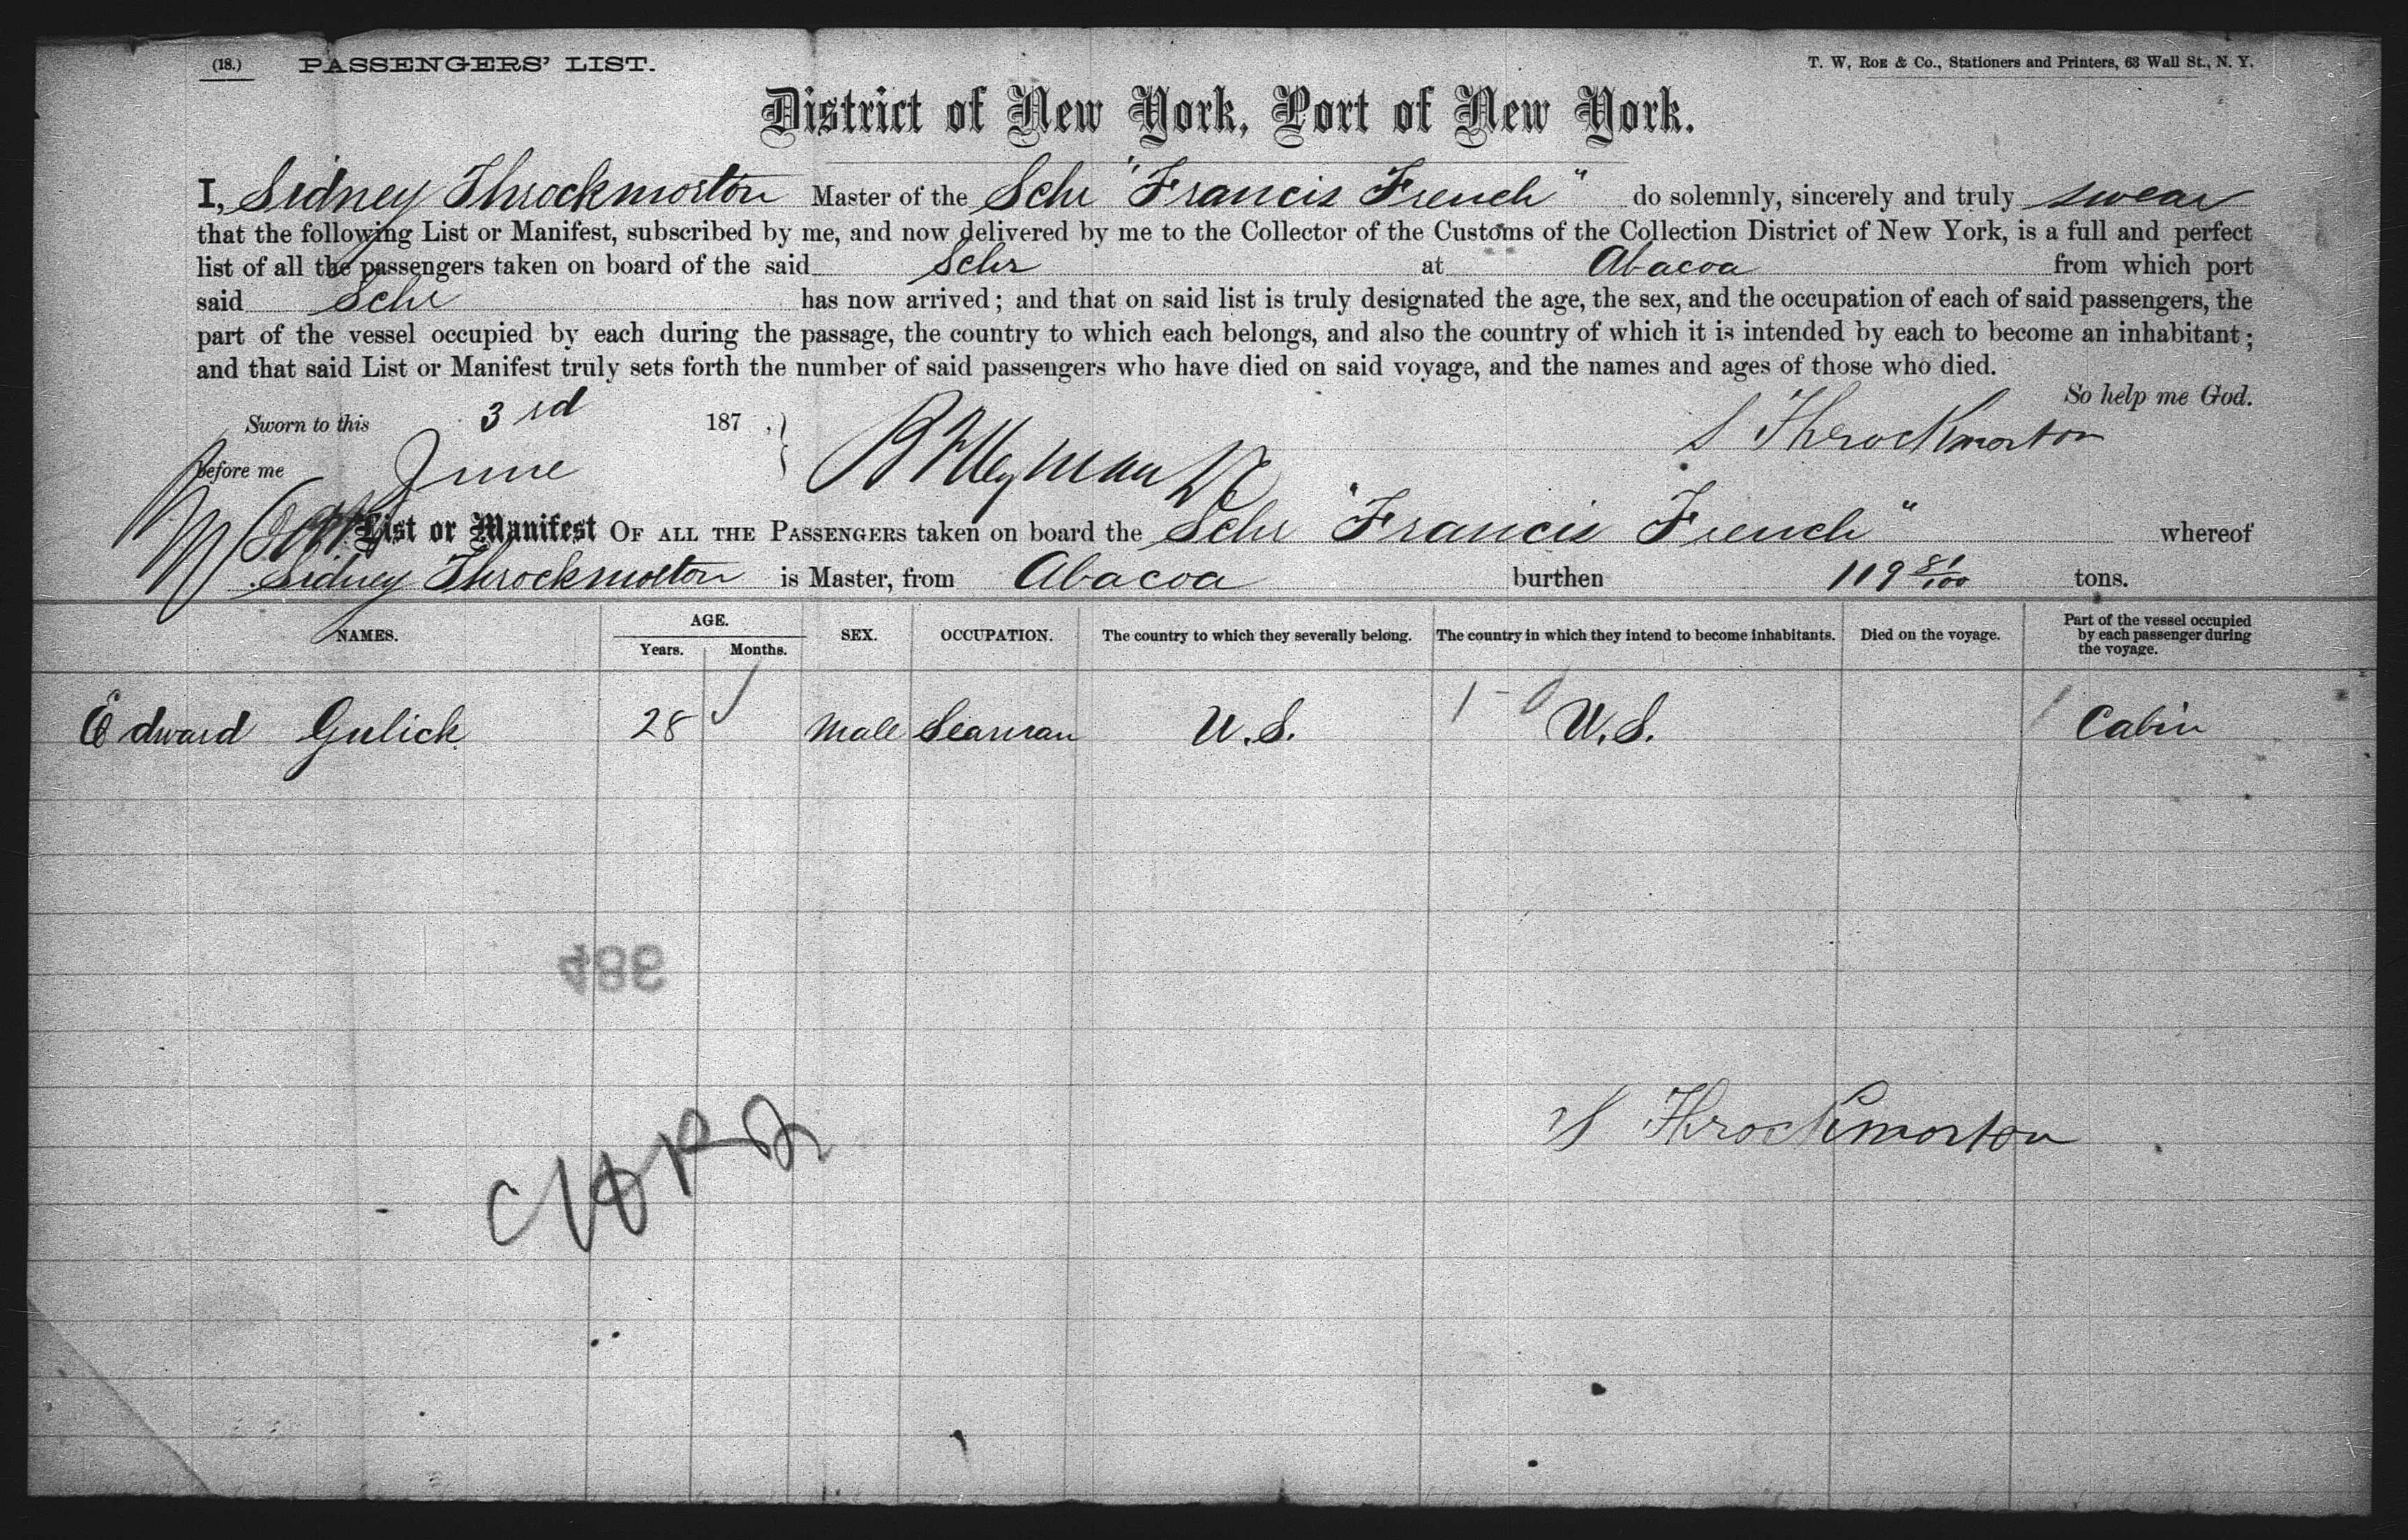 (18.) PASSENGERS' LIST. T. W. ROE & Co., Stationers and Printers, 63 Wall St., N. Y.
District of New York, Port of New York.
I, Sidney Throckmorton Master of the Schr "Francis French" do solemnly, sincerely and truly swear
that the following List or Manifest, subscribed by me, and now delivered by me to the Collector of the Customs of the Collection District of New York, is a full and perfect
list of all the passengers taken on board of the said Schr at Abacoa from which port
said Schr has now arrived; and that on said list is truly designated the age, the sex, and the occupation of each of said passengers, the
part of the vessel occupied by each during the passage, the country to which each belongs, and also the country of which it is intended by each to become an inhabitant;
and that said List or Manifest truly sets forth the number of said passengers who have died on said voyage, and the names and ages of those who died.
So help me God.
Sworn to this 3rd 187 , S Throckmorton
before me June
List or Manifest OF ALL THE PASSENGERS taken on board the Schr "Francis French" whereof
Sidney Throckmorton is Master, from Abacoa burthen 119 81/100 tons.
NAMES. AGE. Years. Months. SEX. OCCUPATION. The country to which they severally belong. The country in which they intend to become inhabitants. Died on the voyage. Part of the vessel occupied by each passenger during the voyage.
Edward Gulick 28 Male Seaman U.S. U.S. Cabin
486
S Throckmorton